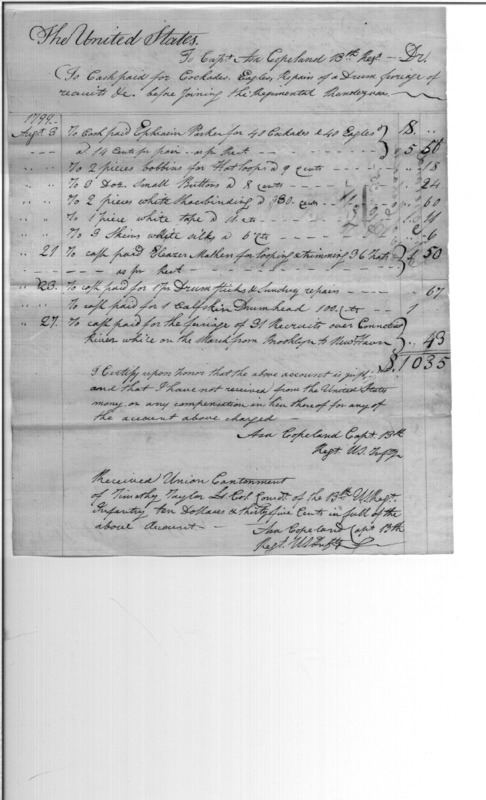 The United States.
To Capt Asa Copeland 13th Regt — Dr.
To Cash paid for Cockades, Eagles, Repairs of a Drum ferriage of
recruits &c. before joining the Regimental Rendezvous
1799.
Augt 3 To Cash paid Ephraim Parker for 40 Cockades & 40 Eagles
a 14 Cents pr pair as pr Rect 5 56
" " To 2 pieces bobbins for Hat loops a 9 cents 18
" " To 3 Doz. Small Buttons a 8 cents 24
" " To 2 pieces white Shoebinding a 30. cents 60
" " To 1 piece white tape a 11 cts 11
" " To 3 Skeins white silk a 2 cts 6
" 21 To cash paid Eleazer for looping & trimming 36 Hats 1 50
as pr Rect
" 23. To cash paid for 1 pr Drum Sticks & Sundry repairs 67
To cash paid for 1 Calfskin Drumhead 100 cts 1
" 27. To cash paid for the ferriage of 31 Recruits over Connecticut
River while on the March from Brooklyn to New Haven 43
$10 35
I Certify upon honor that the above account is just
and that I have not received from the United States
mony or any compensation in lieu thereof for any of
the account above charged
Asa Copeland Capt 13th
Regt. US. Infty
Received Union Cantonment
of Timothy Taylor Lt Col Comdt. of the 13th US Regt.
Infantry ten Dollars & thirty five Cents in full of the
above Account —
Asa Copeland Capt 13th
Regt. US Infty